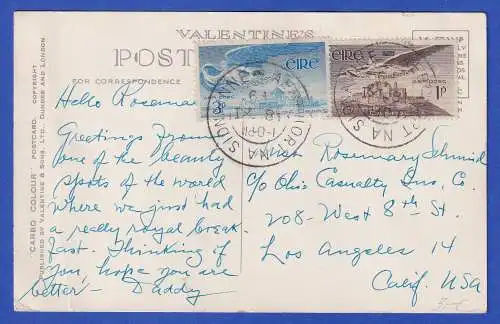 VALENTINE'S
POST
FOR CORRESPONDENCE
"CARBO COLOUR" POSTCARD. COPYRIGHT
PUBLISHED BY VALENTINE & SONS, LTD., DUNDEE AND LONDON
éire
éire
1p
Hello Rosemary
Greetings from
one of the beauty
spots of the world
where we just had
a really royal break
fast. Thinking of
you, hope you are
better - Daddy
Miss Rosemary Schmid
c/o Ohio Casualty Ins. Co.
208-West 8th St.
Los Angeles 14
Calif. USA